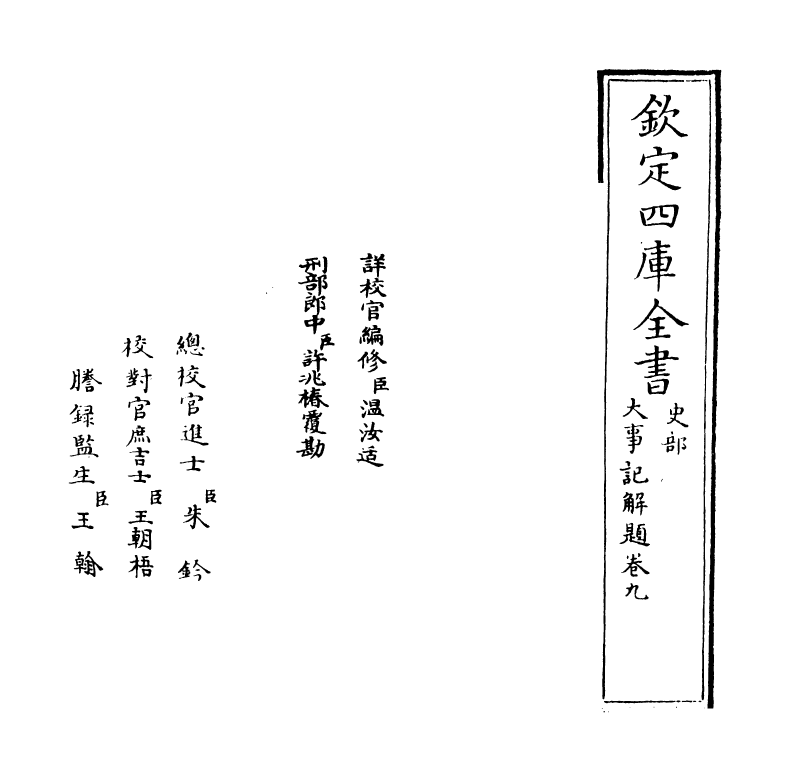 欽定四庫全書
史部
大事記解題卷九
詳校官編修臣温汝适
刑部郎中臣許兆椿覆勘
總校官進士臣朱鈐
校對官庶吉士臣王朝梧
謄録監生臣王翰